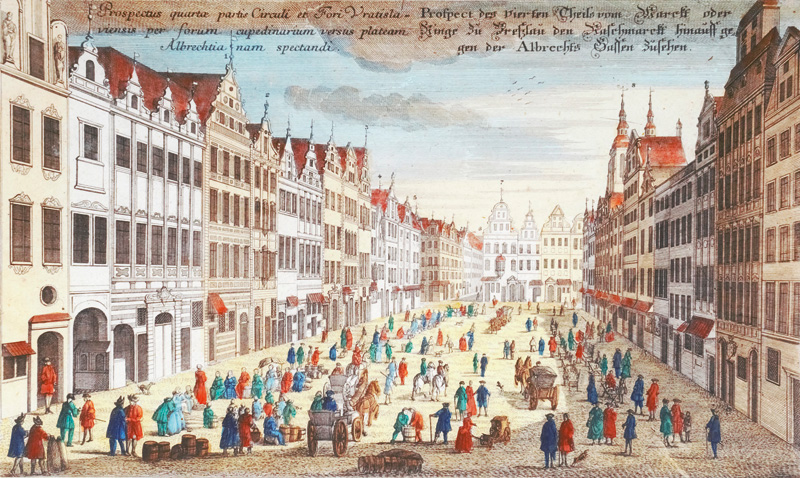 Prospectus quartæ partis Circuli et Fori Vratisla-
viensis per forum cupedinarium versus plateam
Albrechtianam spectandi.
Prospect des vierten Theils vom Marckt oder
Ringe zu Breßlau den Naschmarckt hinauff ge-
gen der Albrechts Gassen zusehen.